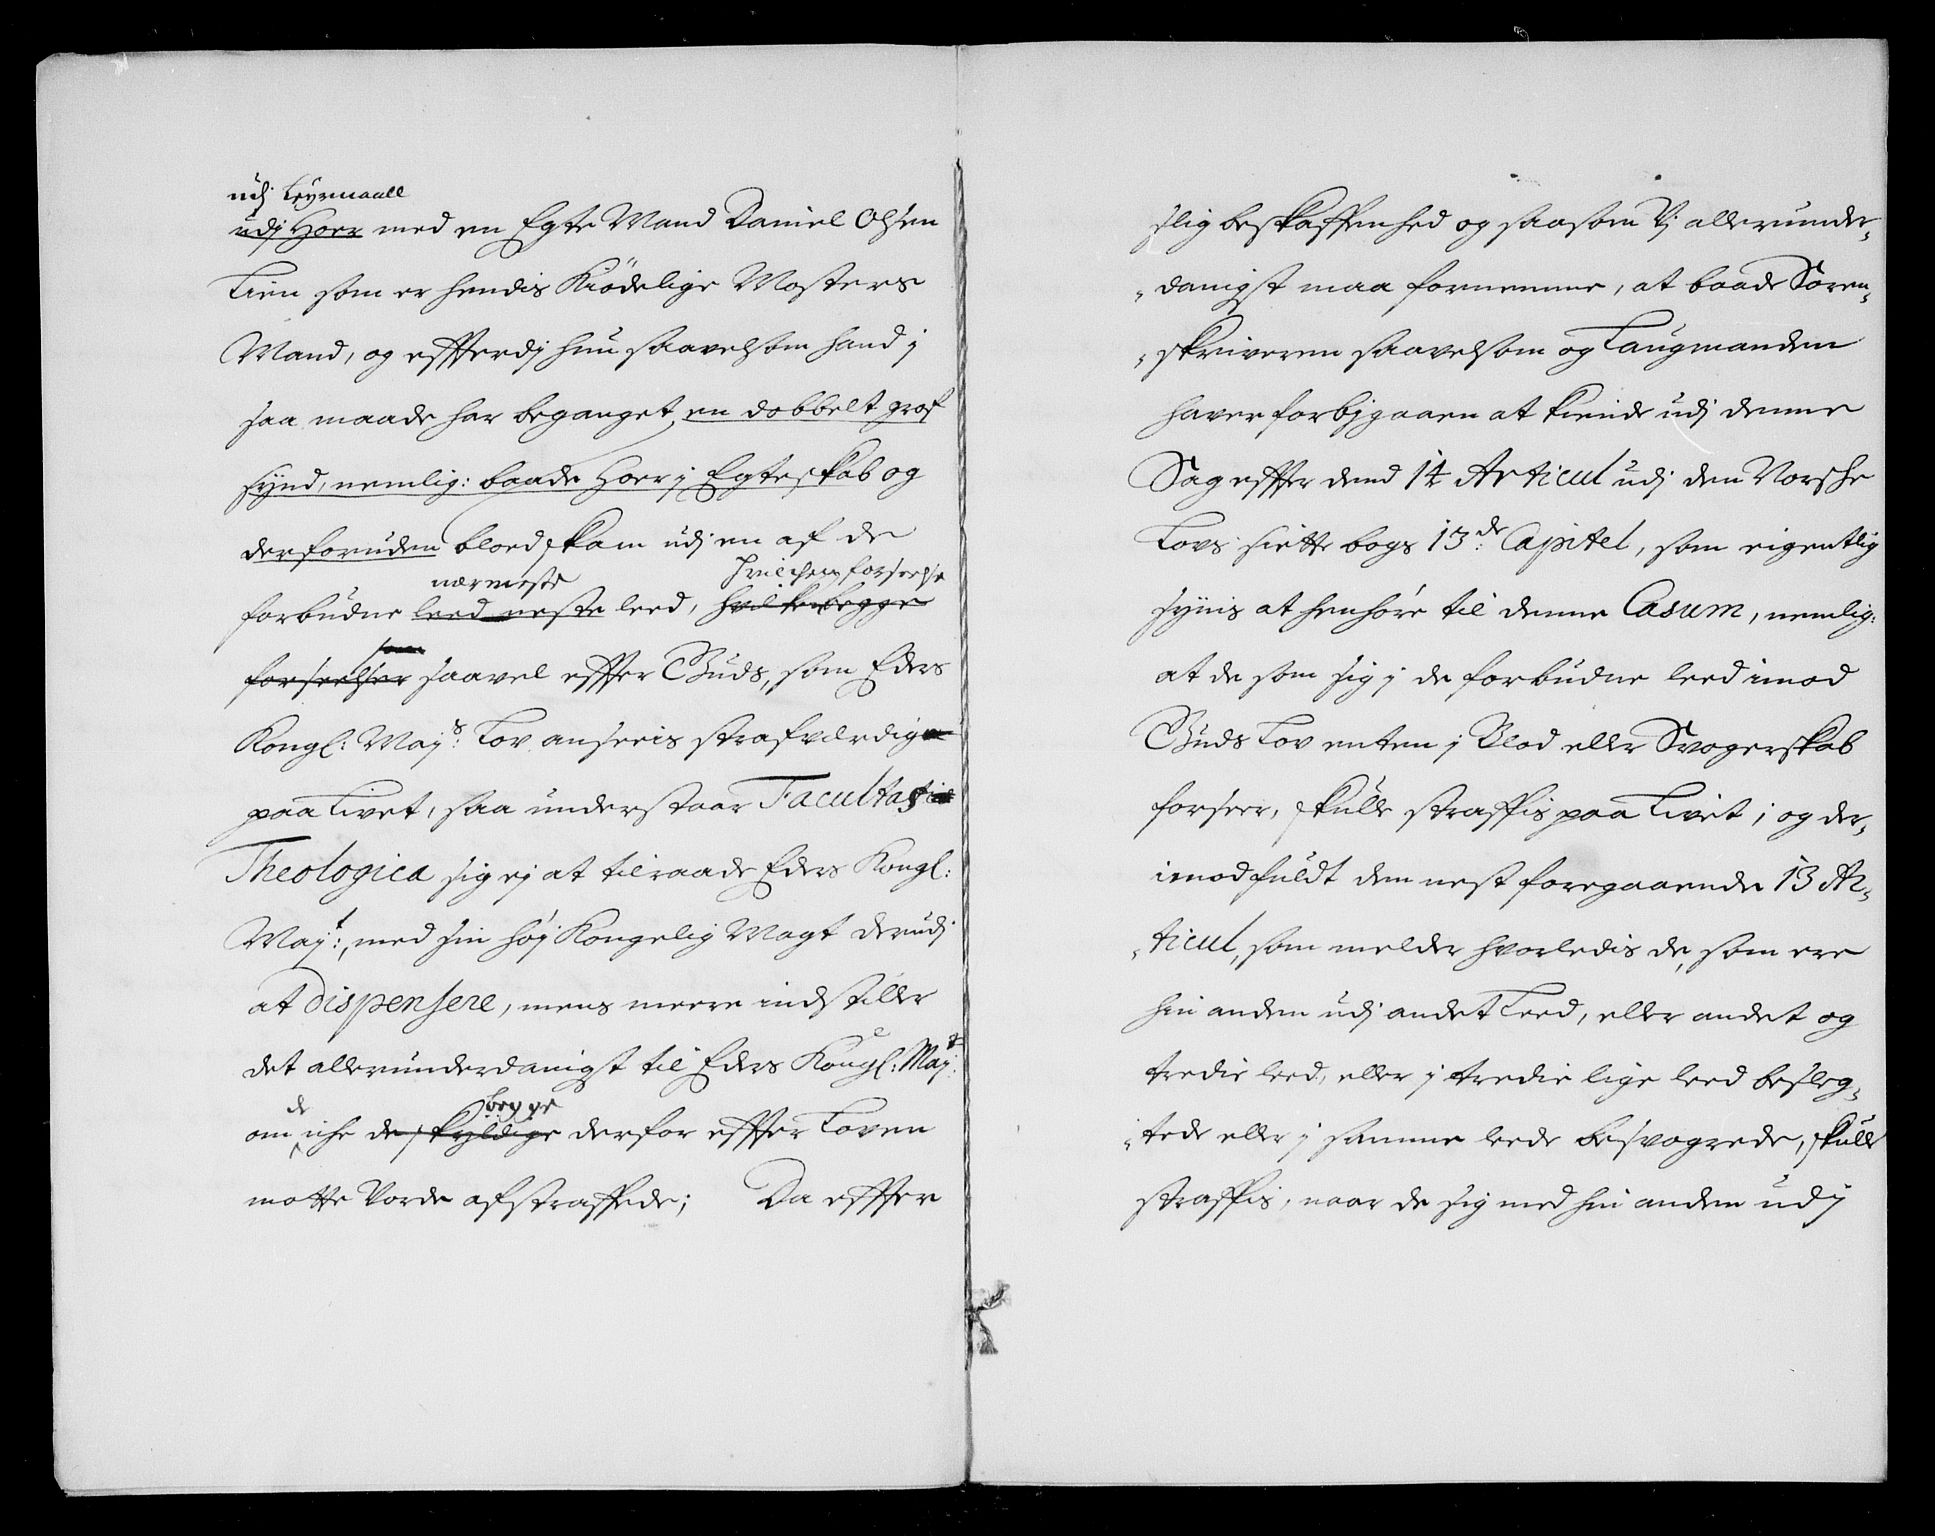 udj Leyrmaall
udj Hoer med en Egte Mand Daniel Olsen
Lien som er hendis Kiödelige Mosters
Mand, og effterdj hun saavelsom hand j
saa maade har beganget en dobbelt grof
synd, nemlig: baade Hoer j Egteskab og
derforuden bloedskam udj en af de
nærmeste Hvilchen forseelse
forbudne leed neste leed, hvilke begge
som
forseelser saavel effter Guds, som Eders
Kongl: Mayˢ: Lov anseeis strafværdige
paa Livet, saa understaar Facultas
Theologica sig ej at tilraade Eders Kongl:
Mayᵗ:, med sin høj Kongelig Magt derudj
at dispensere, mens meere indstiller
det allerunderdanigst til Eders Kongl: Mayᵗ:
de begge
om iche de skyldige derfor effter Loven
motte Vorde afstraffede; Da effter
slig beskaffenhed og saasom Vj allerunder-
danigst maa fornemme, at baade Soren-
skriveren saavelsom og Laugmanden
haver forbjgaaen at kiende udj denne
Sag effter dend 14 Articul udj den Norsche
Lovs siette bogs 13de Capitel, som eigentlig
synis at henhøre til denne Casum, nemlig:
at de som sig j de forbudne leed imod
Guds Lov enten j Blod eller Svogerskab
forseer, skulle straffis paa Livet; og der-
imod fuldt den nest foregaaende 13 Ar-
ticul, som melder hvorledis de, som ere
hin anden udj andet Leed, eller andet og
tredie leed, eller j tredie lige leed besleg-
tede eller j samme leede besvogrede, skulle
straffis, naar de sig med hin anden udj